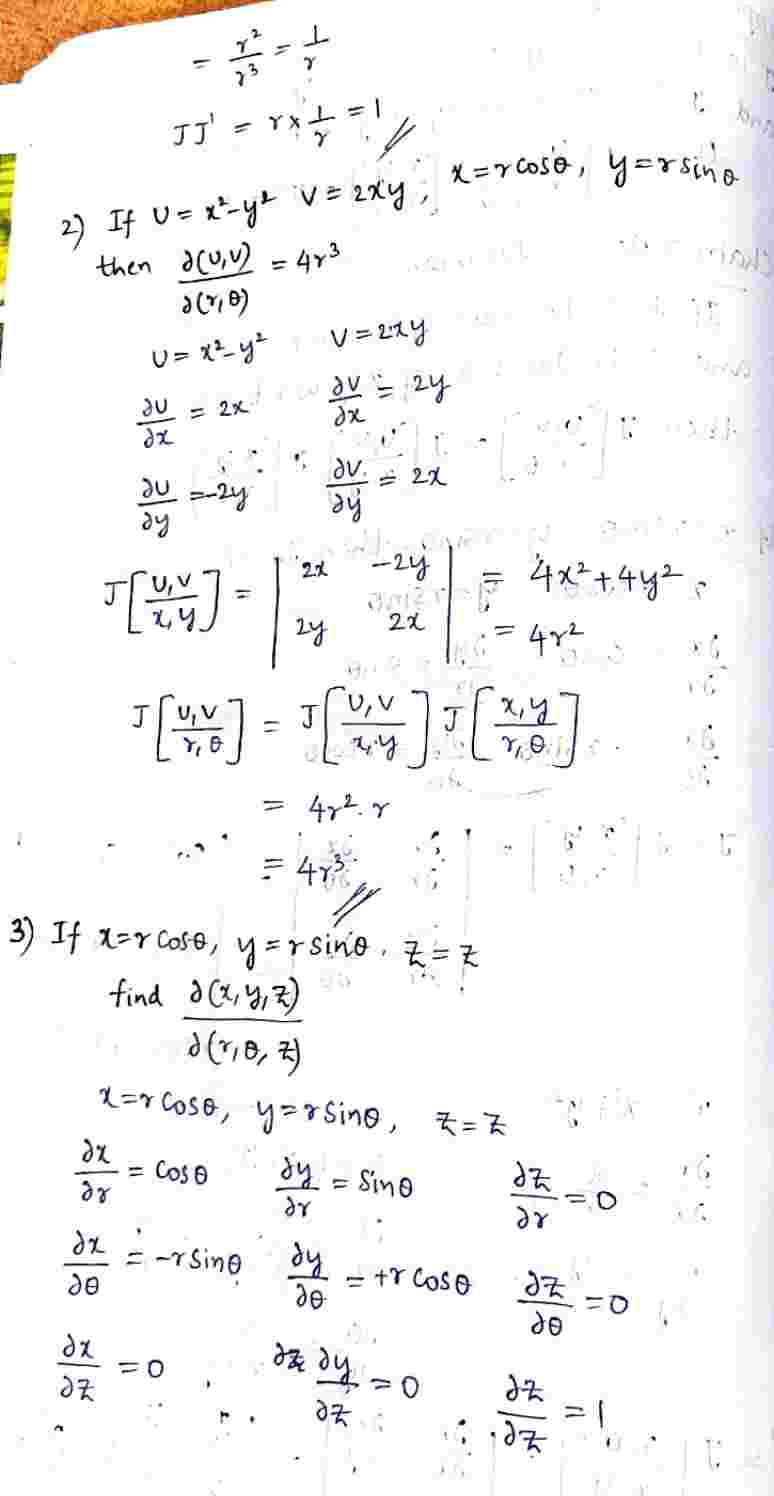 = r²/r³ = 1/r
JJ' = r × 1/r = 1 //
2) If U = x²-y² V = 2xy, x=rcosθ, y=rsinθ
then ∂(U,V)/∂(r,θ) = 4r³
U = x²-y² V = 2xy
∂U/∂x = 2x ∂V/∂x = 2y
∂U/∂y = -2y ∂V/∂y = 2x
J[U,V/x,y] = |2x -2y; 2y 2x| = 4x²+4y²
= 4r²
J[U,V/r,θ] = J[U,V/x,y] J[x,y/r,θ]
= 4r².r
= 4r³ //
3) If x=rcosθ, y=rsinθ, z=z
find ∂(x,y,z)/∂(r,θ,z)
x=rcosθ, y=rsinθ, z=z
∂x/∂r = cosθ ∂y/∂r = sinθ ∂z/∂r = 0
∂x/∂θ = -rsinθ ∂y/∂θ = +rcosθ ∂z/∂θ = 0
∂x/∂z = 0 ∂y/∂z = 0 ∂z/∂z = 1